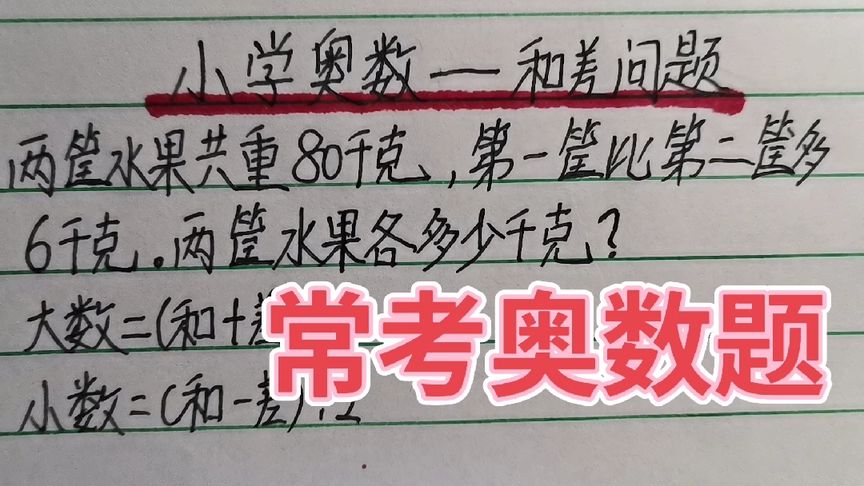 小学奥数一和差问题
两筐水果共重80千克,第一筐比第二筐多
6千克。两筐水果各多少千克?
大数=(和+差
常考奥数题
小数=(和-差)÷2